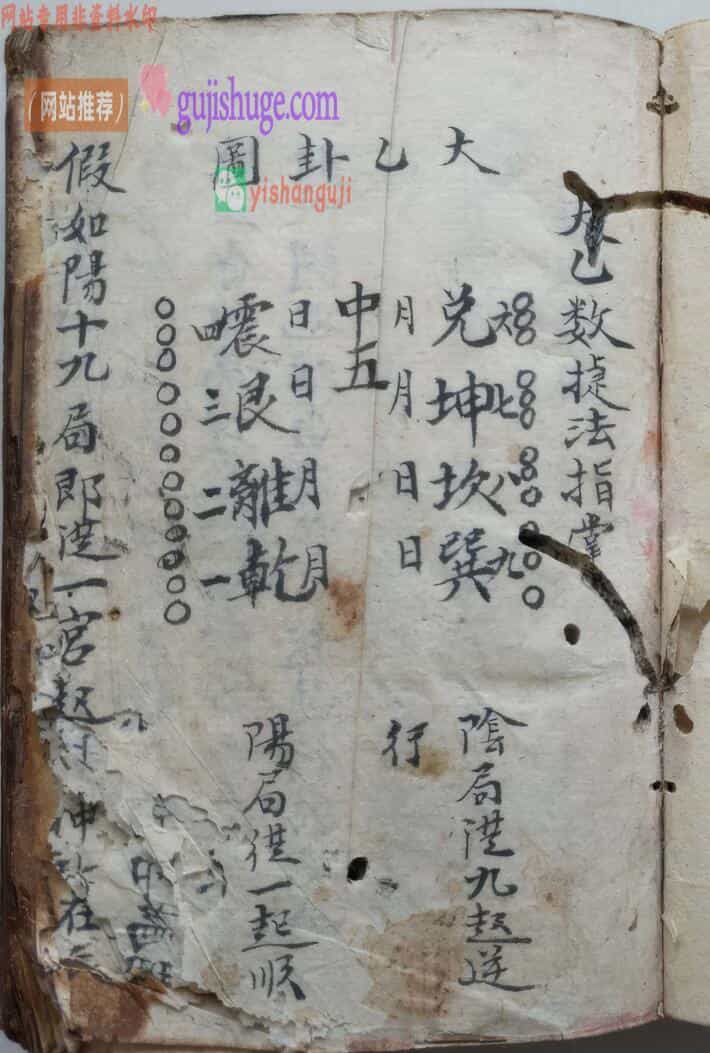 网站专用非资料水印
（网站推荐）
gujishuge.com
yishanguji
乙数捷法指掌
大乙卦圖
兌六
坤七
坎八
巽九
月
月
日
日
中五
日
日
月
月
四震
三艮
二離
一乾
陰局従九起逆
行
陽局従一起順
假如陽十九局即従一宮起
在